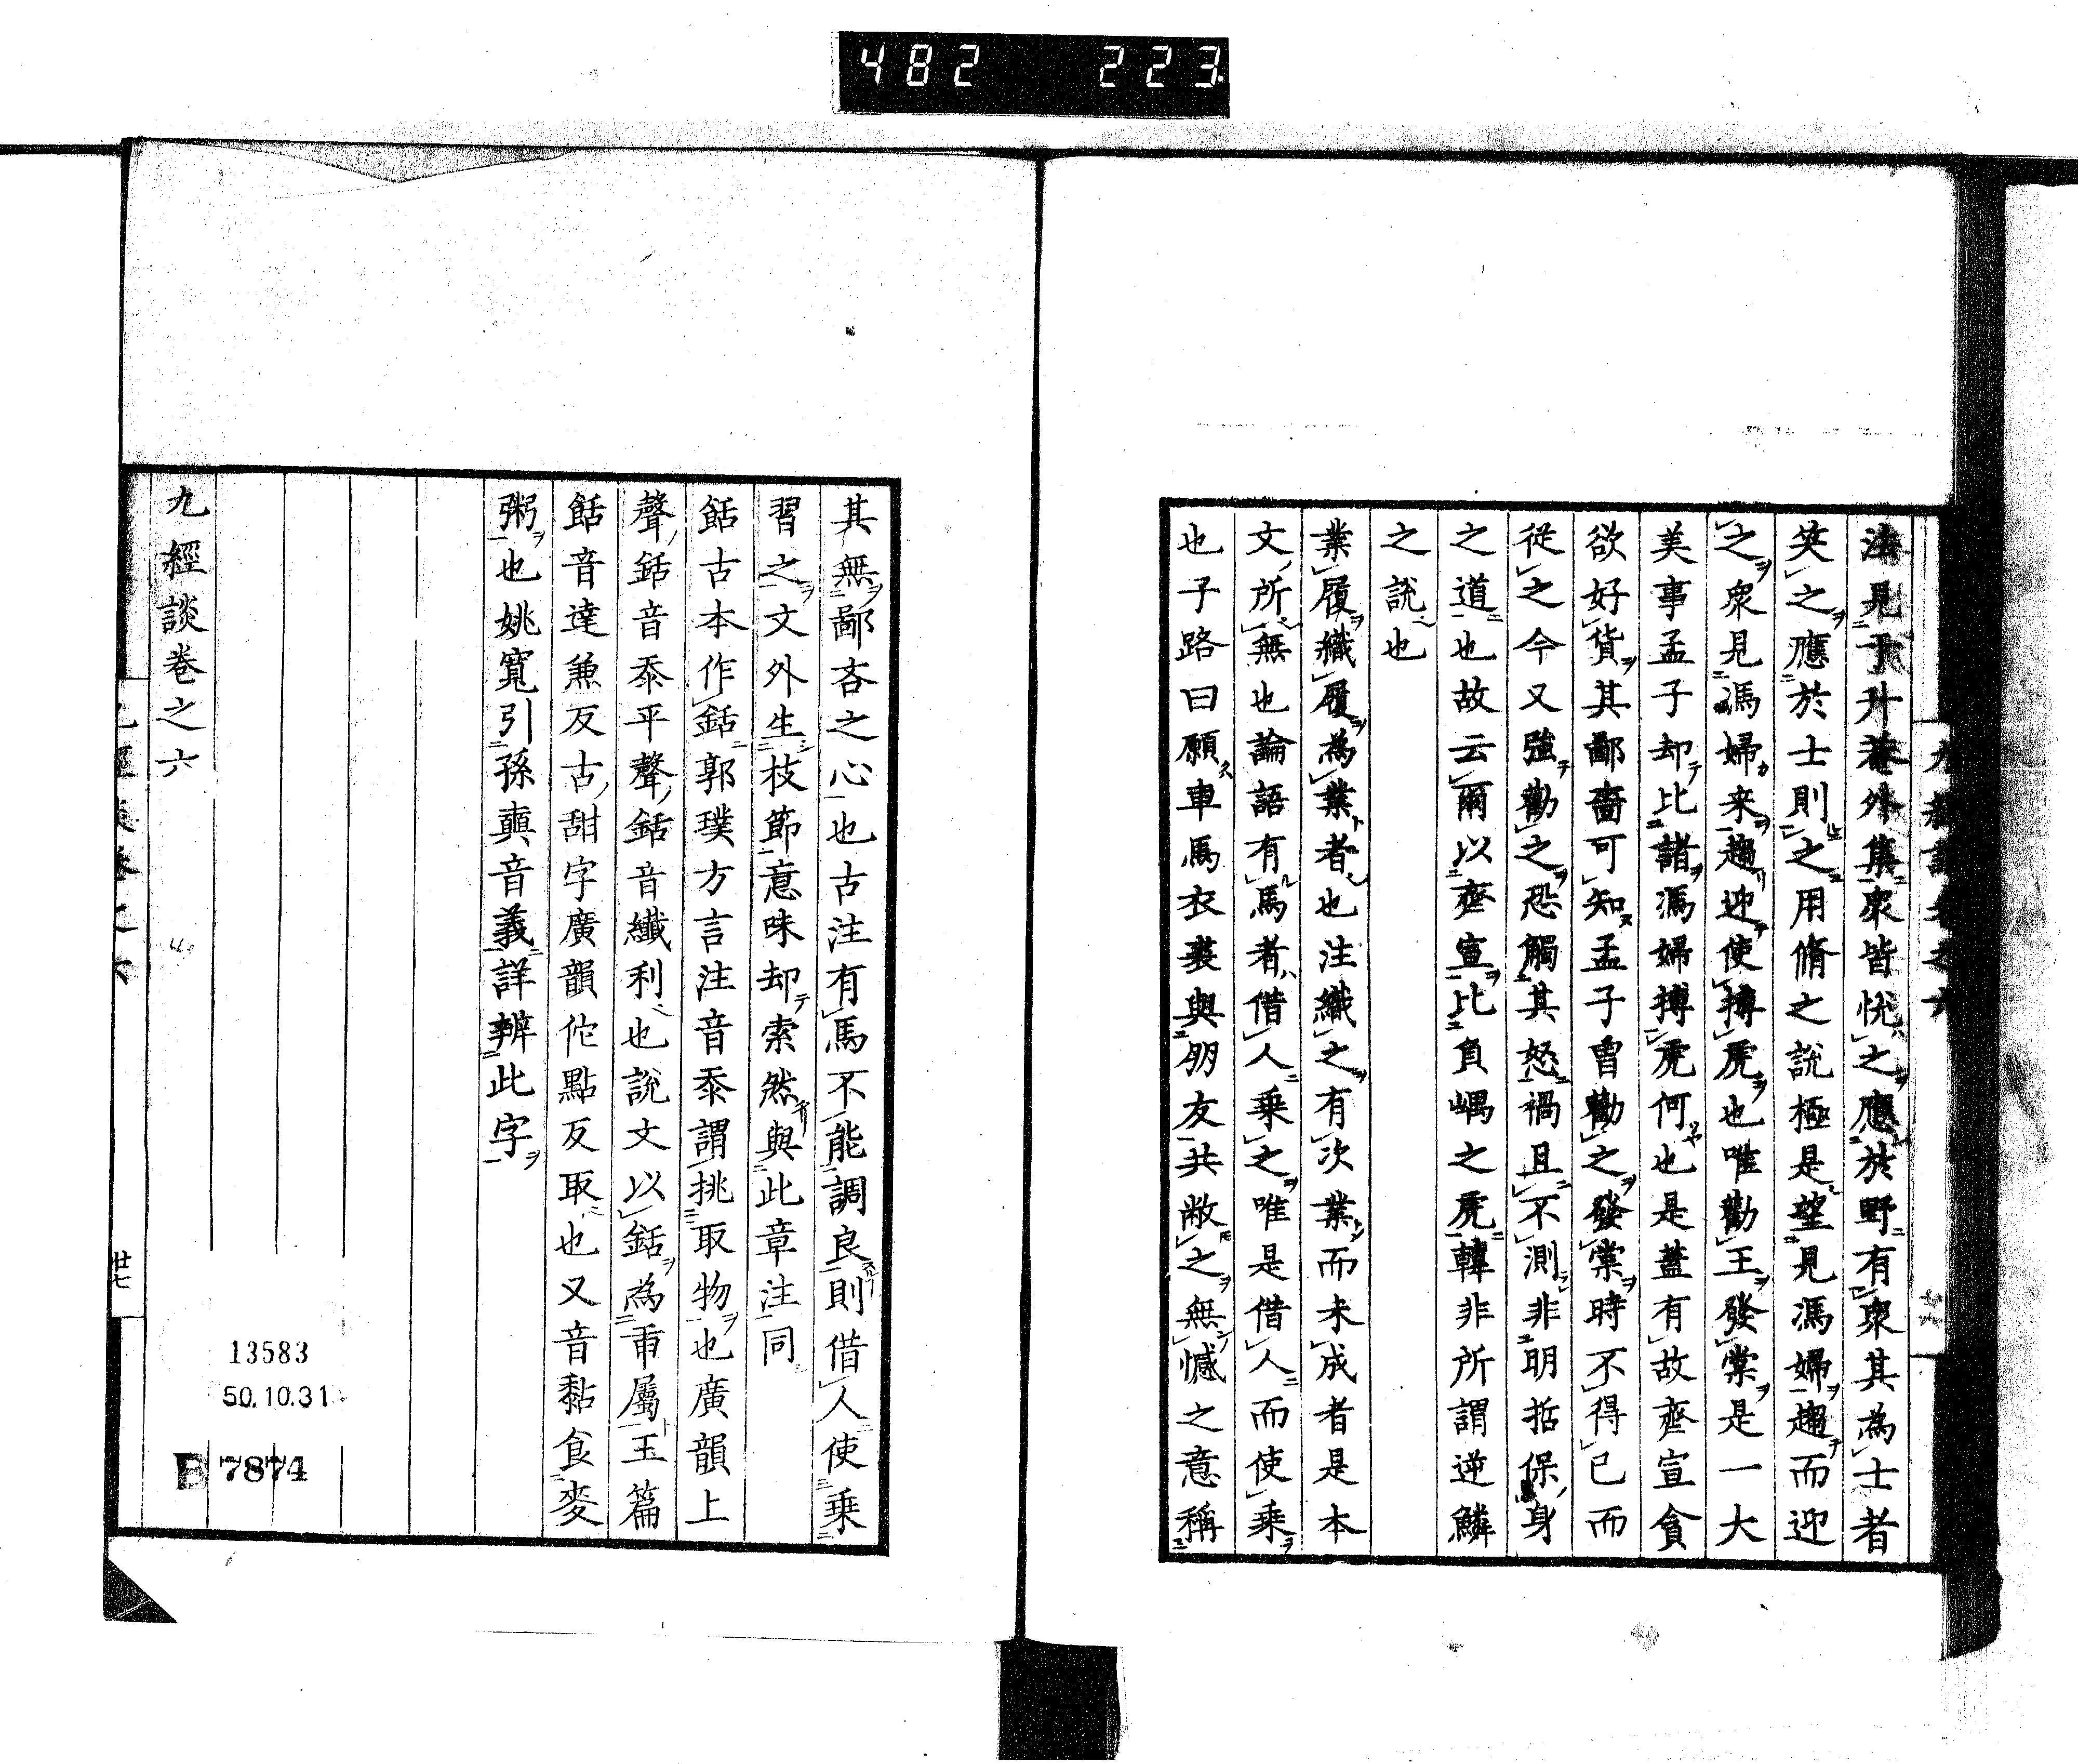 482 223
法見于升菴外集衆皆悅之應於野有衆其為士者
笑之應於士則之用脩之說極是望見馮婦趨而迎
之衆見馮婦来趨迎使搏虎也唯勸王發棠是一大
美事孟子却比諸馮婦搏虎何也是蓋有故齊宣貪
欲好貨其鄙嗇可知孟子曾勸之發棠時不得已而
從之今又強勸之恐觸其怒禍且不測非明哲保身
之道也故云爾以齊宣比負嵎之虎轉非所謂逆鱗
之說也
業屨織屨為業者也注織之有次業而未成者是本
文所無也論語有馬者借人乗之唯是借人而使乗
也子路曰願車馬衣裘與朋友共敝之無憾之意稱
其無鄙吝之心也古注有馬不能調良則借人使乗
習之文外生枝節意味却索然與此章注同
餂古本作銛郭璞方言注音忝謂挑取物也廣韻上
聲銛音忝平聲銛音纖利也說文以銛為臿屬玉篇
餂音達兼反古甜字廣韻佗點反取也又音黏食麥
粥也姚寬引孫奭音義詳辨此字
九經談卷之六
九經談卷之六
廿七
13583
50.10.31
B 7874